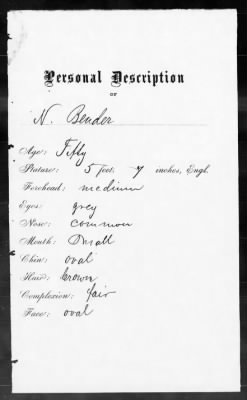 Personal Description
OF
N. Bender
Age: Fifty
Stature: 5 feet, 7 inches, Engl.
Forehead: medium
Eyes: grey
Nose: common
Mouth: Small
Chin: oval
Hair: brown
Complexion: fair
Face: oval